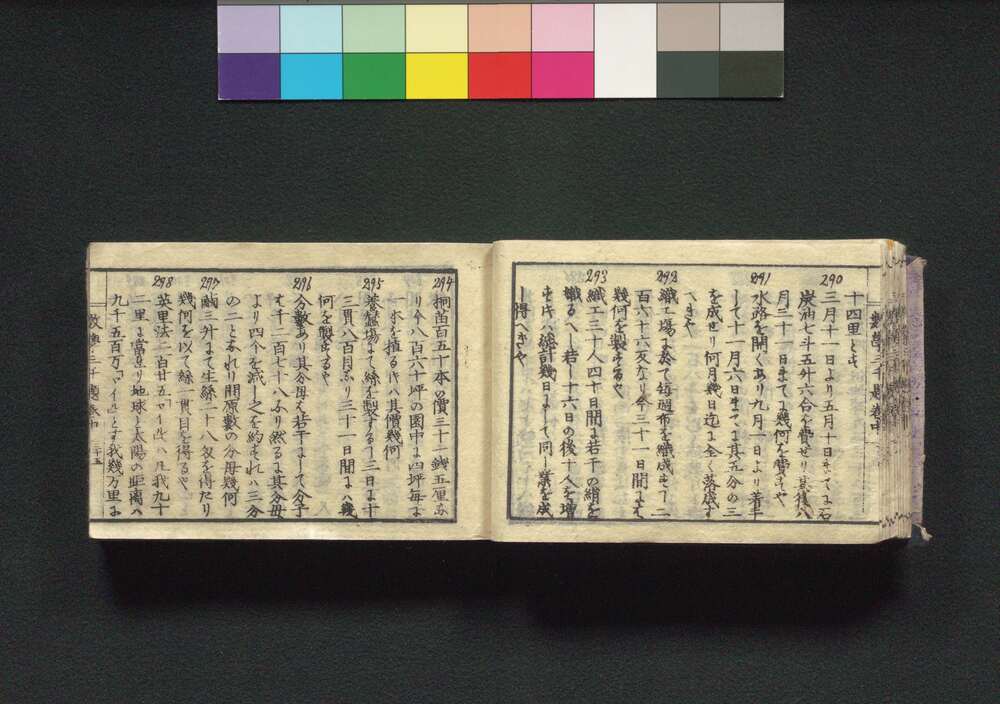 十四里とす
290
三月十一日より五月十日まてに石
炭油七斗五升六合を費せり其後八
月三十一日まてに幾何を費すや
291
水路を開くあり九月一日より着手
して十一月六日まてに其五分の三
を成せり何月幾日迄に全く落成す
へきや
292
織工場に於て毎週布を織成すこ二
百六十六反なり今三十一日間にて
幾何を製するや
293
織工三十人四十日間に若干の絹を
織るへし若し十六日の後十人を増
すときハ總計幾日にして同し業を成
し得へきや
294
桐苗百五十本の價三十一錢五厘な
り今八百六十坪の園中に四坪毎に
一本を植るときハ其價幾何
295
養蠶場にて絲を製する三日に十
三貫八百目なり三十一日間にハ幾
何を製するや
296
分數あり其分母は若干にして分子
は千二百七十八なり然るに其分母
より四个を減し之を約すれハ三分
の二となれり問原數の分母幾何
297
繭三升にて生絲二十八匁を得たり
幾何を以て絲一貫目を得るや
298
英里法二百廿五「マイル」ハ凡我九十
二里に當れり地球と太陽の距離ハ
九千五百万「マイル」とす我幾万里に
數學三千題卷中
數學三千題卷中 三十五